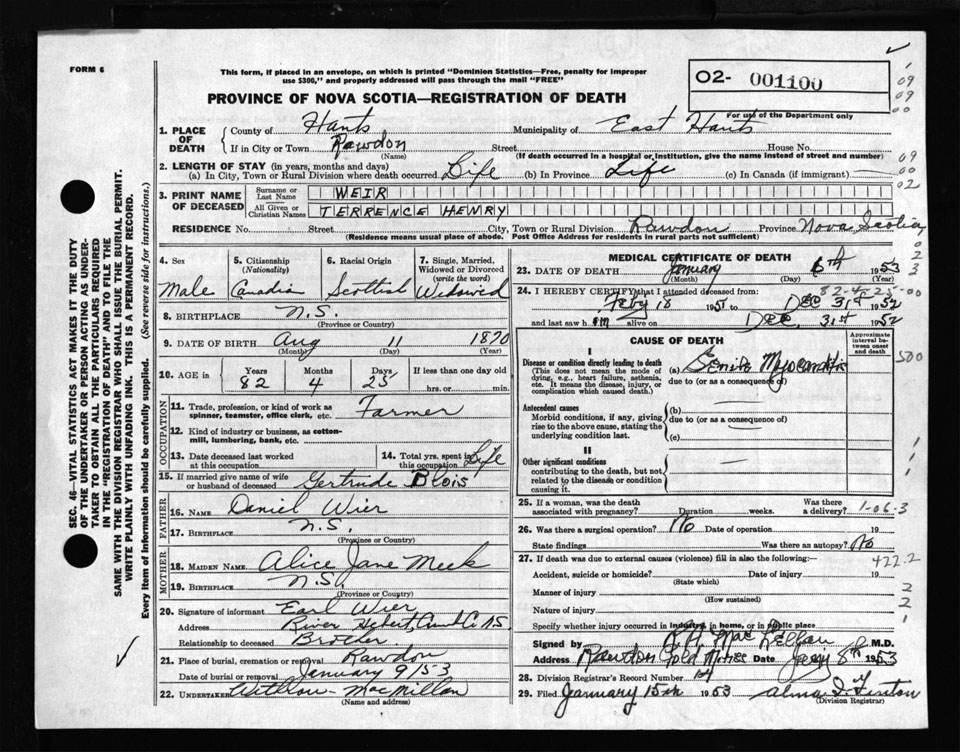 FORM 6
This form, if placed in an envelope, on which is printed "Dominion Statistics—Free, penalty for improper
use $300," and properly addressed will pass through the mail "FREE"
PROVINCE OF NOVA SCOTIA—REGISTRATION OF DEATH
02- 001100
For use of the Department only
1. PLACE OF DEATH { County of Hants Municipality of East Hants
If in City or Town Rawdon (Name) Street House No.
(If death occurred in a hospital or institution, give the name instead of street and number)
2. LENGTH OF STAY (in years, months and days)
(a) In City, Town or Rural Division where death occurred Life (b) In Province Life (c) In Canada (if immigrant)
3. PRINT NAME OF DECEASED { Surname or Last Name WEIR
All Given or Christian Names TERRENCE HENRY
RESIDENCE No. Street City, Town or Rural Division Rawdon Province Nova Scotia
(Residence means usual place of abode. Post Office Address for residents in rural parts not sufficient)
4. Sex Male
5. Citizenship (Nationality) Canadian
6. Racial Origin Scottish
7. Single, Married, Widowed or Divorced (write the word) Widowed
8. BIRTHPLACE N.S.
(Province or Country)
9. DATE OF BIRTH Aug 11 1870
(Month) (Day) (Year)
10. AGE in { Years 82 Months 4 Days 25 If less than one day old hrs. or min.
OCCUPATION
11. Trade, profession or kind of work as spinner, teamster, office clerk, etc. Farmer
12. Kind of industry or business, as cotton-mill, lumbering, bank, etc.
13. Date deceased last worked at this occupation
14. Total yrs. spent in this occupation Life
15. If married give name of wife or husband of deceased Gertrude Blois
FATHER
16. NAME Daniel Wier
17. BIRTHPLACE N.S.
(Province or Country)
MOTHER
18. MAIDEN NAME Alice Jane Meek
19. BIRTHPLACE N.S.
(Province or Country)
20. Signature of informant Earl Wier
Address River Hebert, Cumb Co N.S.
Relationship to deceased Brother
21. Place of burial, cremation or removal Rawdon
Date of burial or removal January 9/53
22. UNDERTAKER Withrow - MacMillan
(Name and address)
MEDICAL CERTIFICATE OF DEATH
23. DATE OF DEATH January 6th 1953
(Month) (Day) (Year)
24. I HEREBY CERTIFY that I attended deceased from: 82-4-25-00
Feby 18 1951 to Dec 31st 1952
and last saw him alive on Dec. 31st 1952
CAUSE OF DEATH
Approximate interval between onset and death
I
Disease or condition directly leading to death
(This does not mean the mode of dying, e.g., heart failure, asthenia, etc. It means the disease, injury, or complication which caused death.)
(a) Senile Myocarditis
due to (or as a consequence of)
Antecedent causes
Morbid conditions, if any, giving rise to the above cause, stating the underlying condition last.
(b)
due to (or as a consequence of)
(c)
II
Other significant conditions
contributing to the death, but not related to the disease or condition causing it.
25. If a woman, was the death associated with pregnancy? Duration weeks. Was there a delivery? 1-06-3
26. Was there a surgical operation? No Date of operation 19
State findings Was there an autopsy? No
27. If death was due to external causes (violence) fill in also the following: 422.2
Accident, suicide or homicide? Date of injury 19
(State which)
Manner of injury
(How sustained)
Nature of injury
Specify whether injury occurred in industry, in home, or in public place
Signed by R.H. MacLellan M.D.
Address Rawdon Gold Mines Date Jany 8th 1953
28. Division Registrar's Record Number
29. Filed January 15th 1953 Alma I. Fenton
(Division Registrar)
SEC. 46—VITAL STATISTICS ACT MAKES IT THE DUTY
OF THE UNDERTAKER OR PERSON ACTING AS UNDER-
TAKER TO OBTAIN ALL THE PARTICULARS REQUIRED
IN THE "REGISTRATION OF DEATH" AND TO FILE THE
SAME WITH THE DIVISION REGISTRAR WHO SHALL ISSUE THE BURIAL PERMIT.
WRITE PLAINLY WITH UNFADING INK. THIS IS A PERMANENT RECORD.
Every item of information should be carefully supplied. (See reverse side for instructions.)